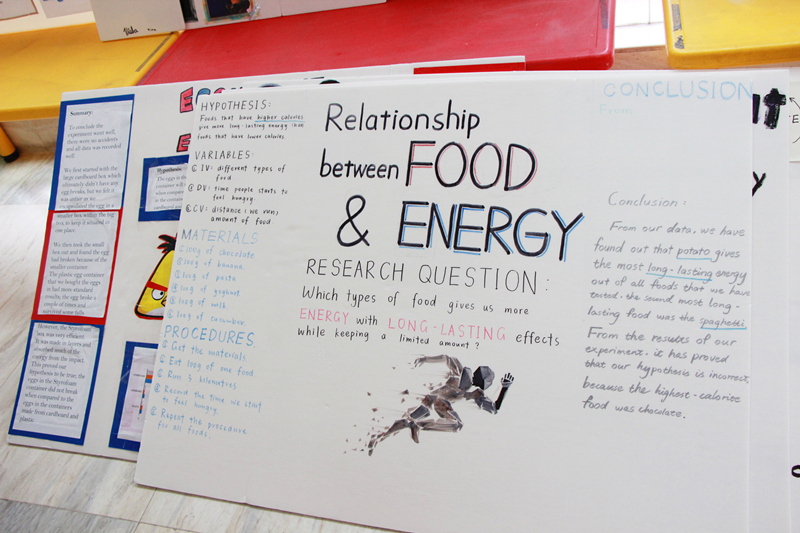 Vida
Summary:
To conclude the
experiment went well,
there were no accidents
and all data was recorded
well.
We first started with the
large cardboard box which
ultimately didn't have any
egg breaks, but we felt it
was unfair so we
encapsulated the egg in a
smaller box within the big
box to keep it situated in
one place.
We then took the small
box out and found the egg
had broken because of the
smaller container
The plastic egg container
that we bought the eggs
in had more standard
results, the egg broke a
couple of times and
survived some falls.
However, the Styrofoam
box was very efficient
It was made in layers and
absorbed much of the
energy from the impact.
This proved our
hypothesis to be true, the
eggs in the Styrofoam
container did not break
when compared to the
eggs in the containers
made from cardboard and
plastic.
Hypothesis
HYPOTHESIS:
Foods that have higher calories
give more long-lasting energy than
foods that have lower calories
VARIABLES:
IV: different types of
food
DV: time people starts to
feel hungry.
CV: distance (we run),
amount of food.
MATERIALS
100g of chocolate
100g of banana
100g of pasta
100g of yoghurt
100g of milk
100g of cucumber
PROCEDURES
Get the materials
Eat 100g of one food
Run 2 kilometres
Record the time we start
to feel hungry.
Repeat the procedure
for all foods.
Relationship
between FOOD
& ENERGY
RESEARCH QUESTION:
Which types of food gives us more
ENERGY with LONG-LASTING effects
while keeping a limited amount?
CONCLUSION
From
Conclusion:
From our data, we have
found out that potato gives
the most long-lasting energy
out of all foods that we have
tested. the second most long-
lasting food was the spaghetti.
From the results of our
experiment, it has proved
that our hypothesis is incorrect,
because the highest-calorie
food was chocolate.